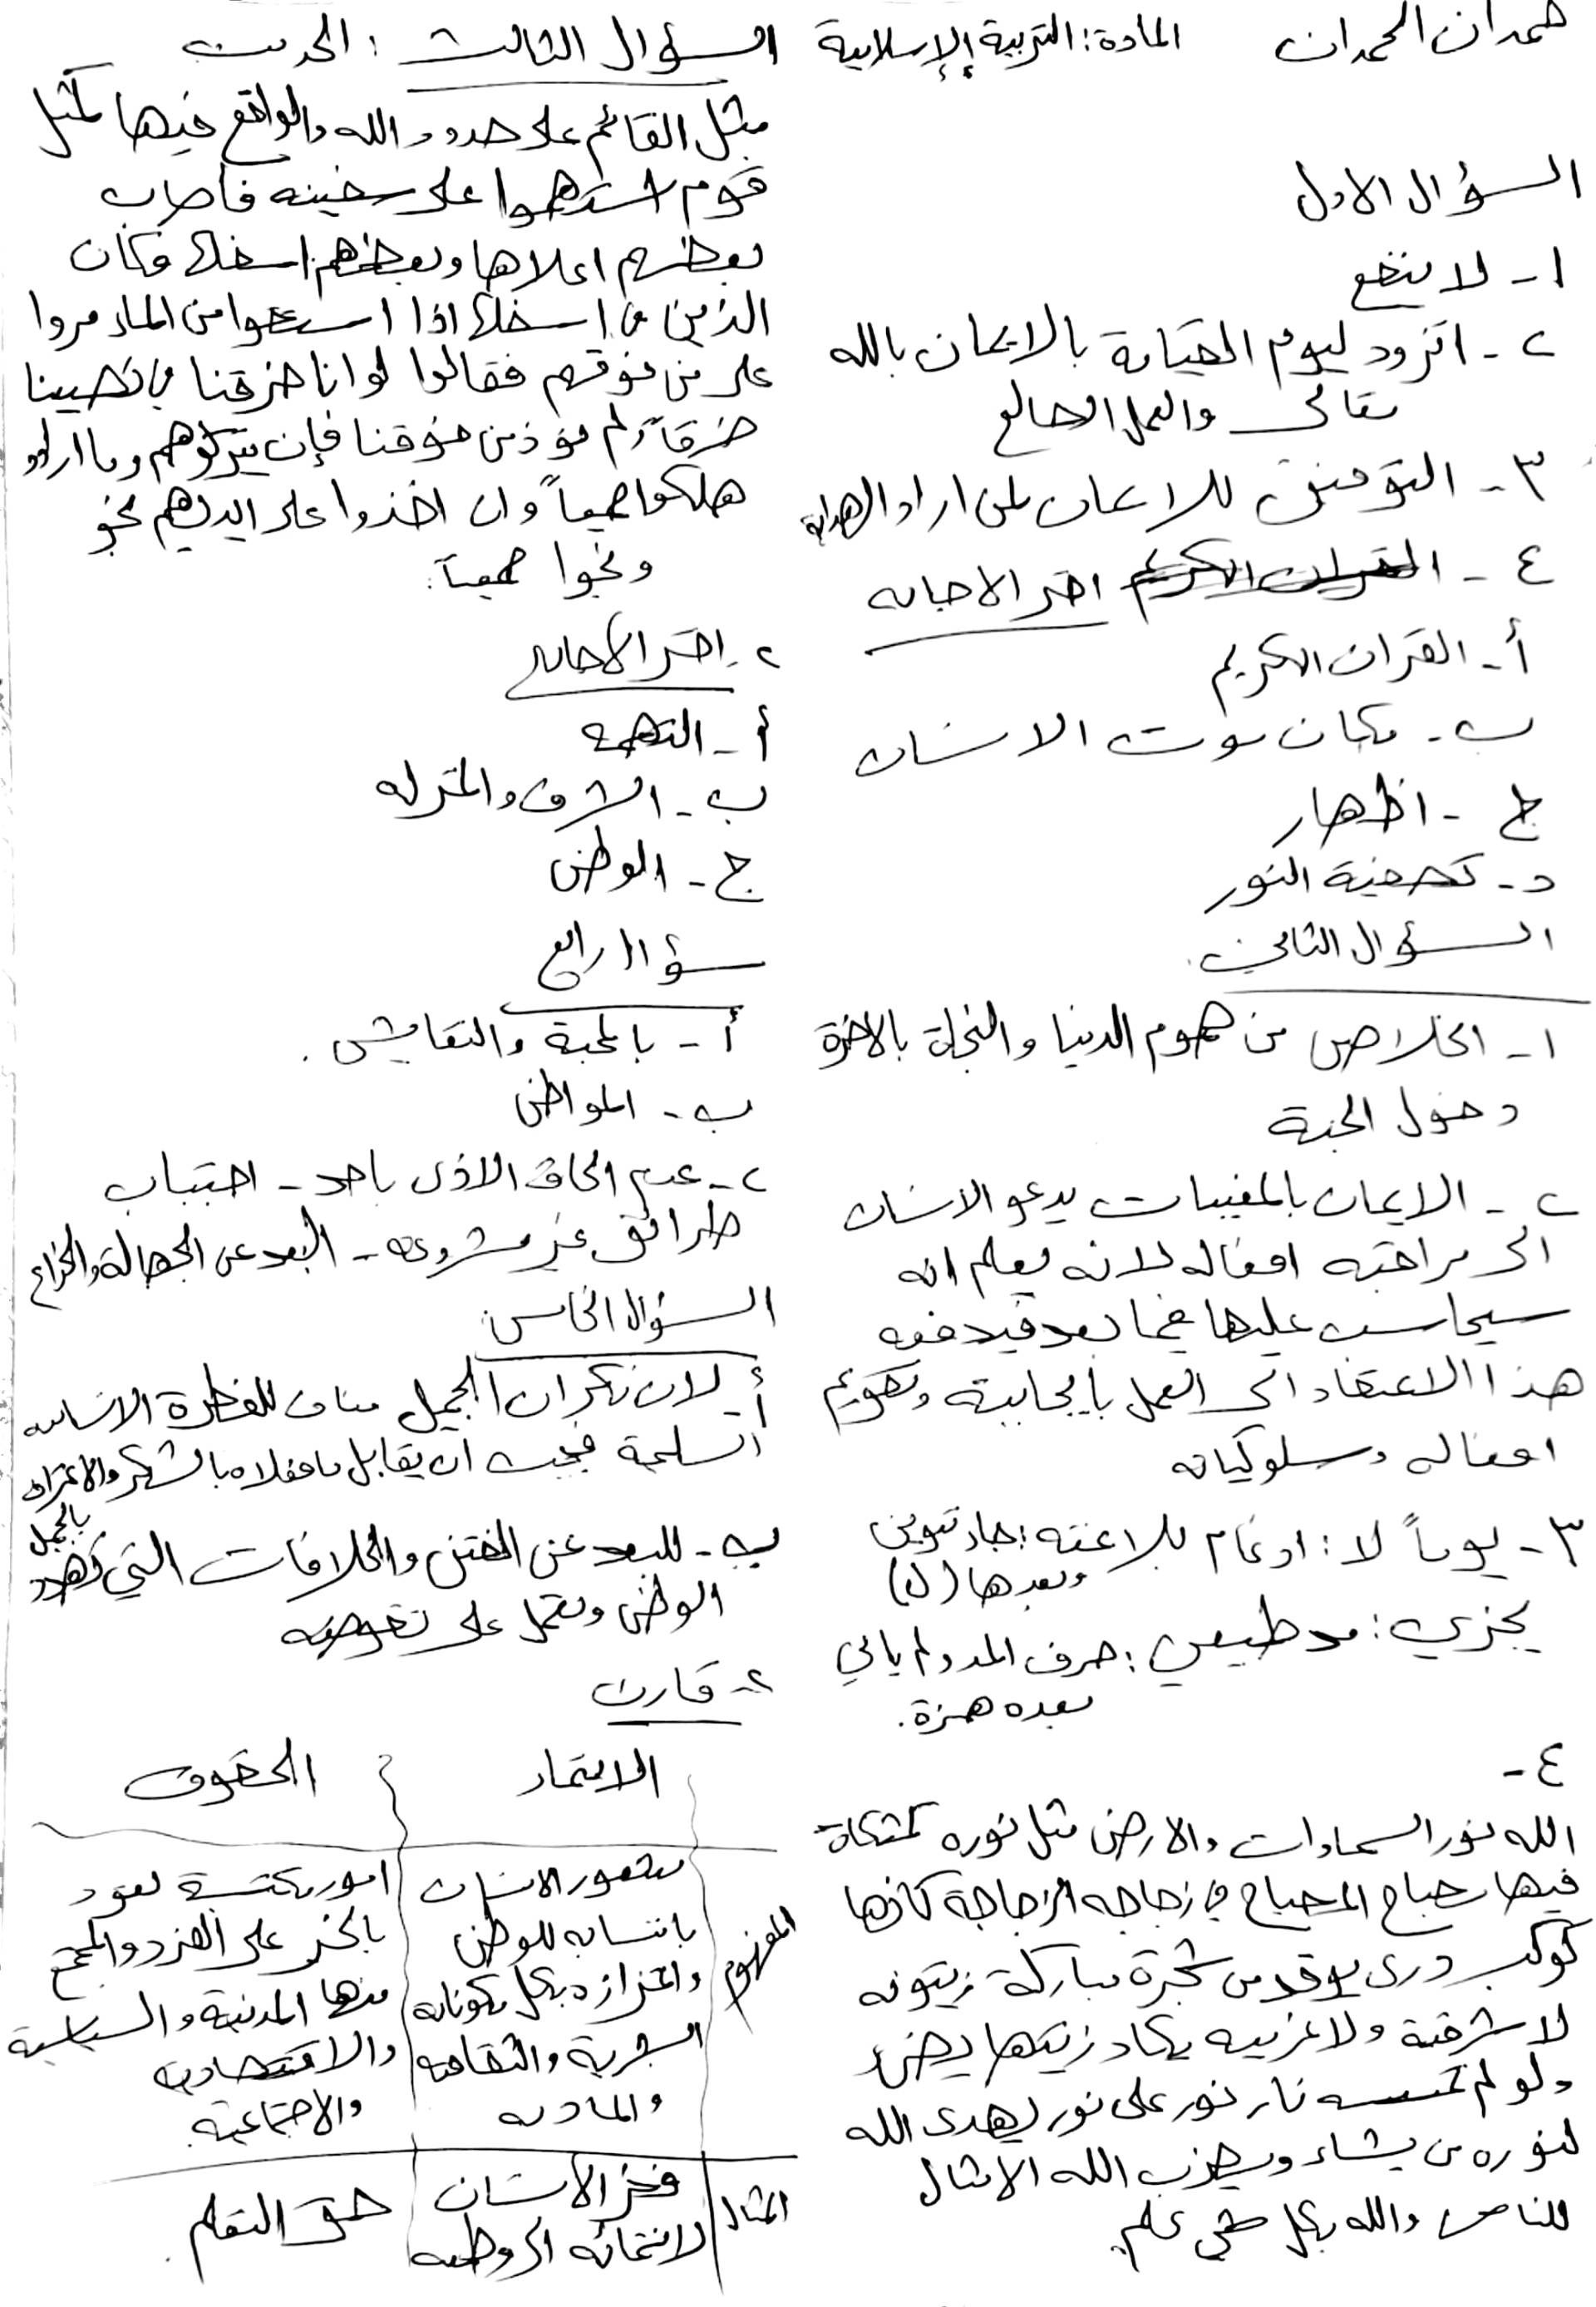 همدان المحمدان
المادة: التربية الإسلامية
السؤال الاول
١- لا ينفع
٢- اتزود ليوم القيامة بالايمان بالله
تعالى والعمل الصالح
٣- التوفيق للايمان لمن اراد الهداية
٤- القران الكريم اختر الاجابه
أ- القران الكريم
ب- مكان موت الانسان
ج- اظهار
د- تصفية النور
السؤال الثاني
١- الخلاص من هموم الدنيا والنجاة بالاخرة
دخول الجنة
٢- الايمان بالمغيبات يدعو الانسان
الى مراقبه افعاله لانه يعلم انه
سيحاسب عليها فيما بعد فيدفعه
هذا الاعتقاد الى العمل بايجابية وتقويم
افعاله وسلوكياته
٣- يوماً لا: ادغام بلا غنه: جاء تنوين
وبعدها (ل)
يجزي: مد طبيعي: حرف المد ولم ياتي
بعده همزة.
٤-
الله نور السماوات والارض مثل نوره كمشكاة
فيها مصباح المصباح في زجاجه الزجاجة كانها
كوكب دري يوقد من شجرة مباركة زيتونه
لا شرقية ولا غربيه يكاد زيتها يضئ
ولو لم تمسسه نار نور على نور يهدى الله
لنوره من يشاء ويضرب الله الامثال
للناس والله بكل شي عليم
السؤال الثالث: الحديث
مثل القائم على حدود الله والواقع فيها كمثل
قوم استهموا على سفينه فاصاب
بعضهم اعلاها وبعضهم اسفلها فكان
الذين في اسفلها اذا استقوا من الماء مروا
على من فوقهم فقالوا لو انا خرقنا في نصيبنا
خرقاً ولم نؤذ من فوقنا فإن يتركوهم وما ارادوا
هلكوا جميعاً وان اخذوا على ايديهم نجو
ونجوا جميعاً.
٢- اختر الاجابه
أ- التهمه
ب- الشرف والمنزله
ج- الوطن
سؤال رابع
أ- بالمحبة والتعايش.
ب- المواطن
٢- عدم الحاق الاذى باحد - اجتناب
طرائق غير مشروعه - البعد عن الجهالة والخداع
السؤال الخامس:
أ- لان نكران الجميل مناف للفطرة الانسانيه
السليمة فيجب ان يقابل ما فعلاه بالشكر والاعتراف
بالجميل
ب- للبعد عن الفتن والخلافات التي تهدد
الوطن وتعمل على تقويضه
٢- قارن
الانتماء الحقوق
المفهوم
شعور الانسان
بانتسابه للوطن
واعتزازه بكل مكوناته
البشرية والثقافيه
والماديه
امور مكتسبة تعود
بالخير على الفرد والمجتمع
منها المدنية والسياسية
والاقتصاديه
والاجتماعية
المثال
فخر الانسان
لانتمائه الى وطنه
حق التعلم.